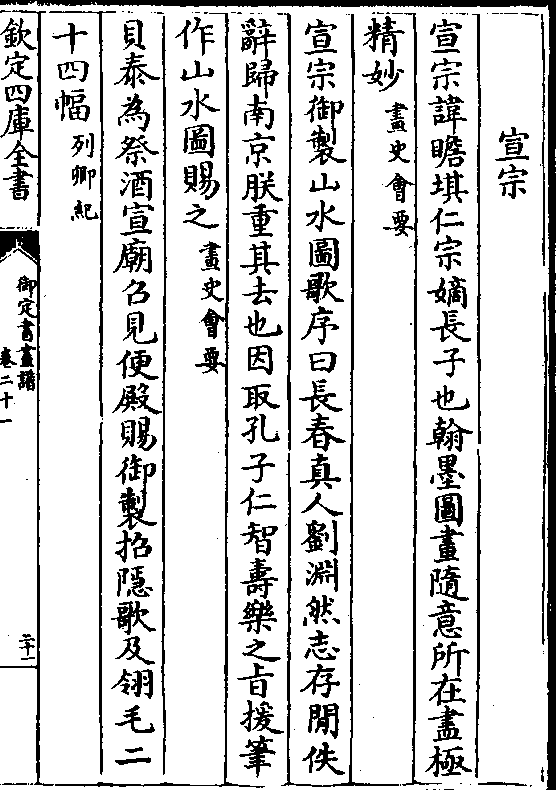 宣宗
宣宗諱瞻基仁宗嫡長子也翰墨圖畫隨意所在盡極
精妙 畫史會要
宣宗御製山水圖歌序曰長春真人劉淵然志存閒佚
辭歸南京朕重其去也因取孔子仁智壽樂之旨援筆
作山水圖賜之 畫史會要
貝泰為祭酒宣廟召見便殿賜御製招隱歌及翎毛二
十四幅 列卿紀
欽定四庫全書
御定書畫譜
卷二十一
二十一